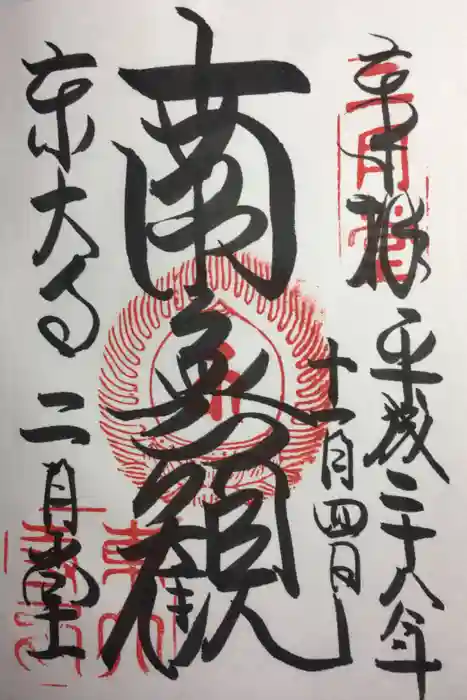 奉拝
平成二十八年
十一月四日
南無観
東大寺 二月堂
二月堂